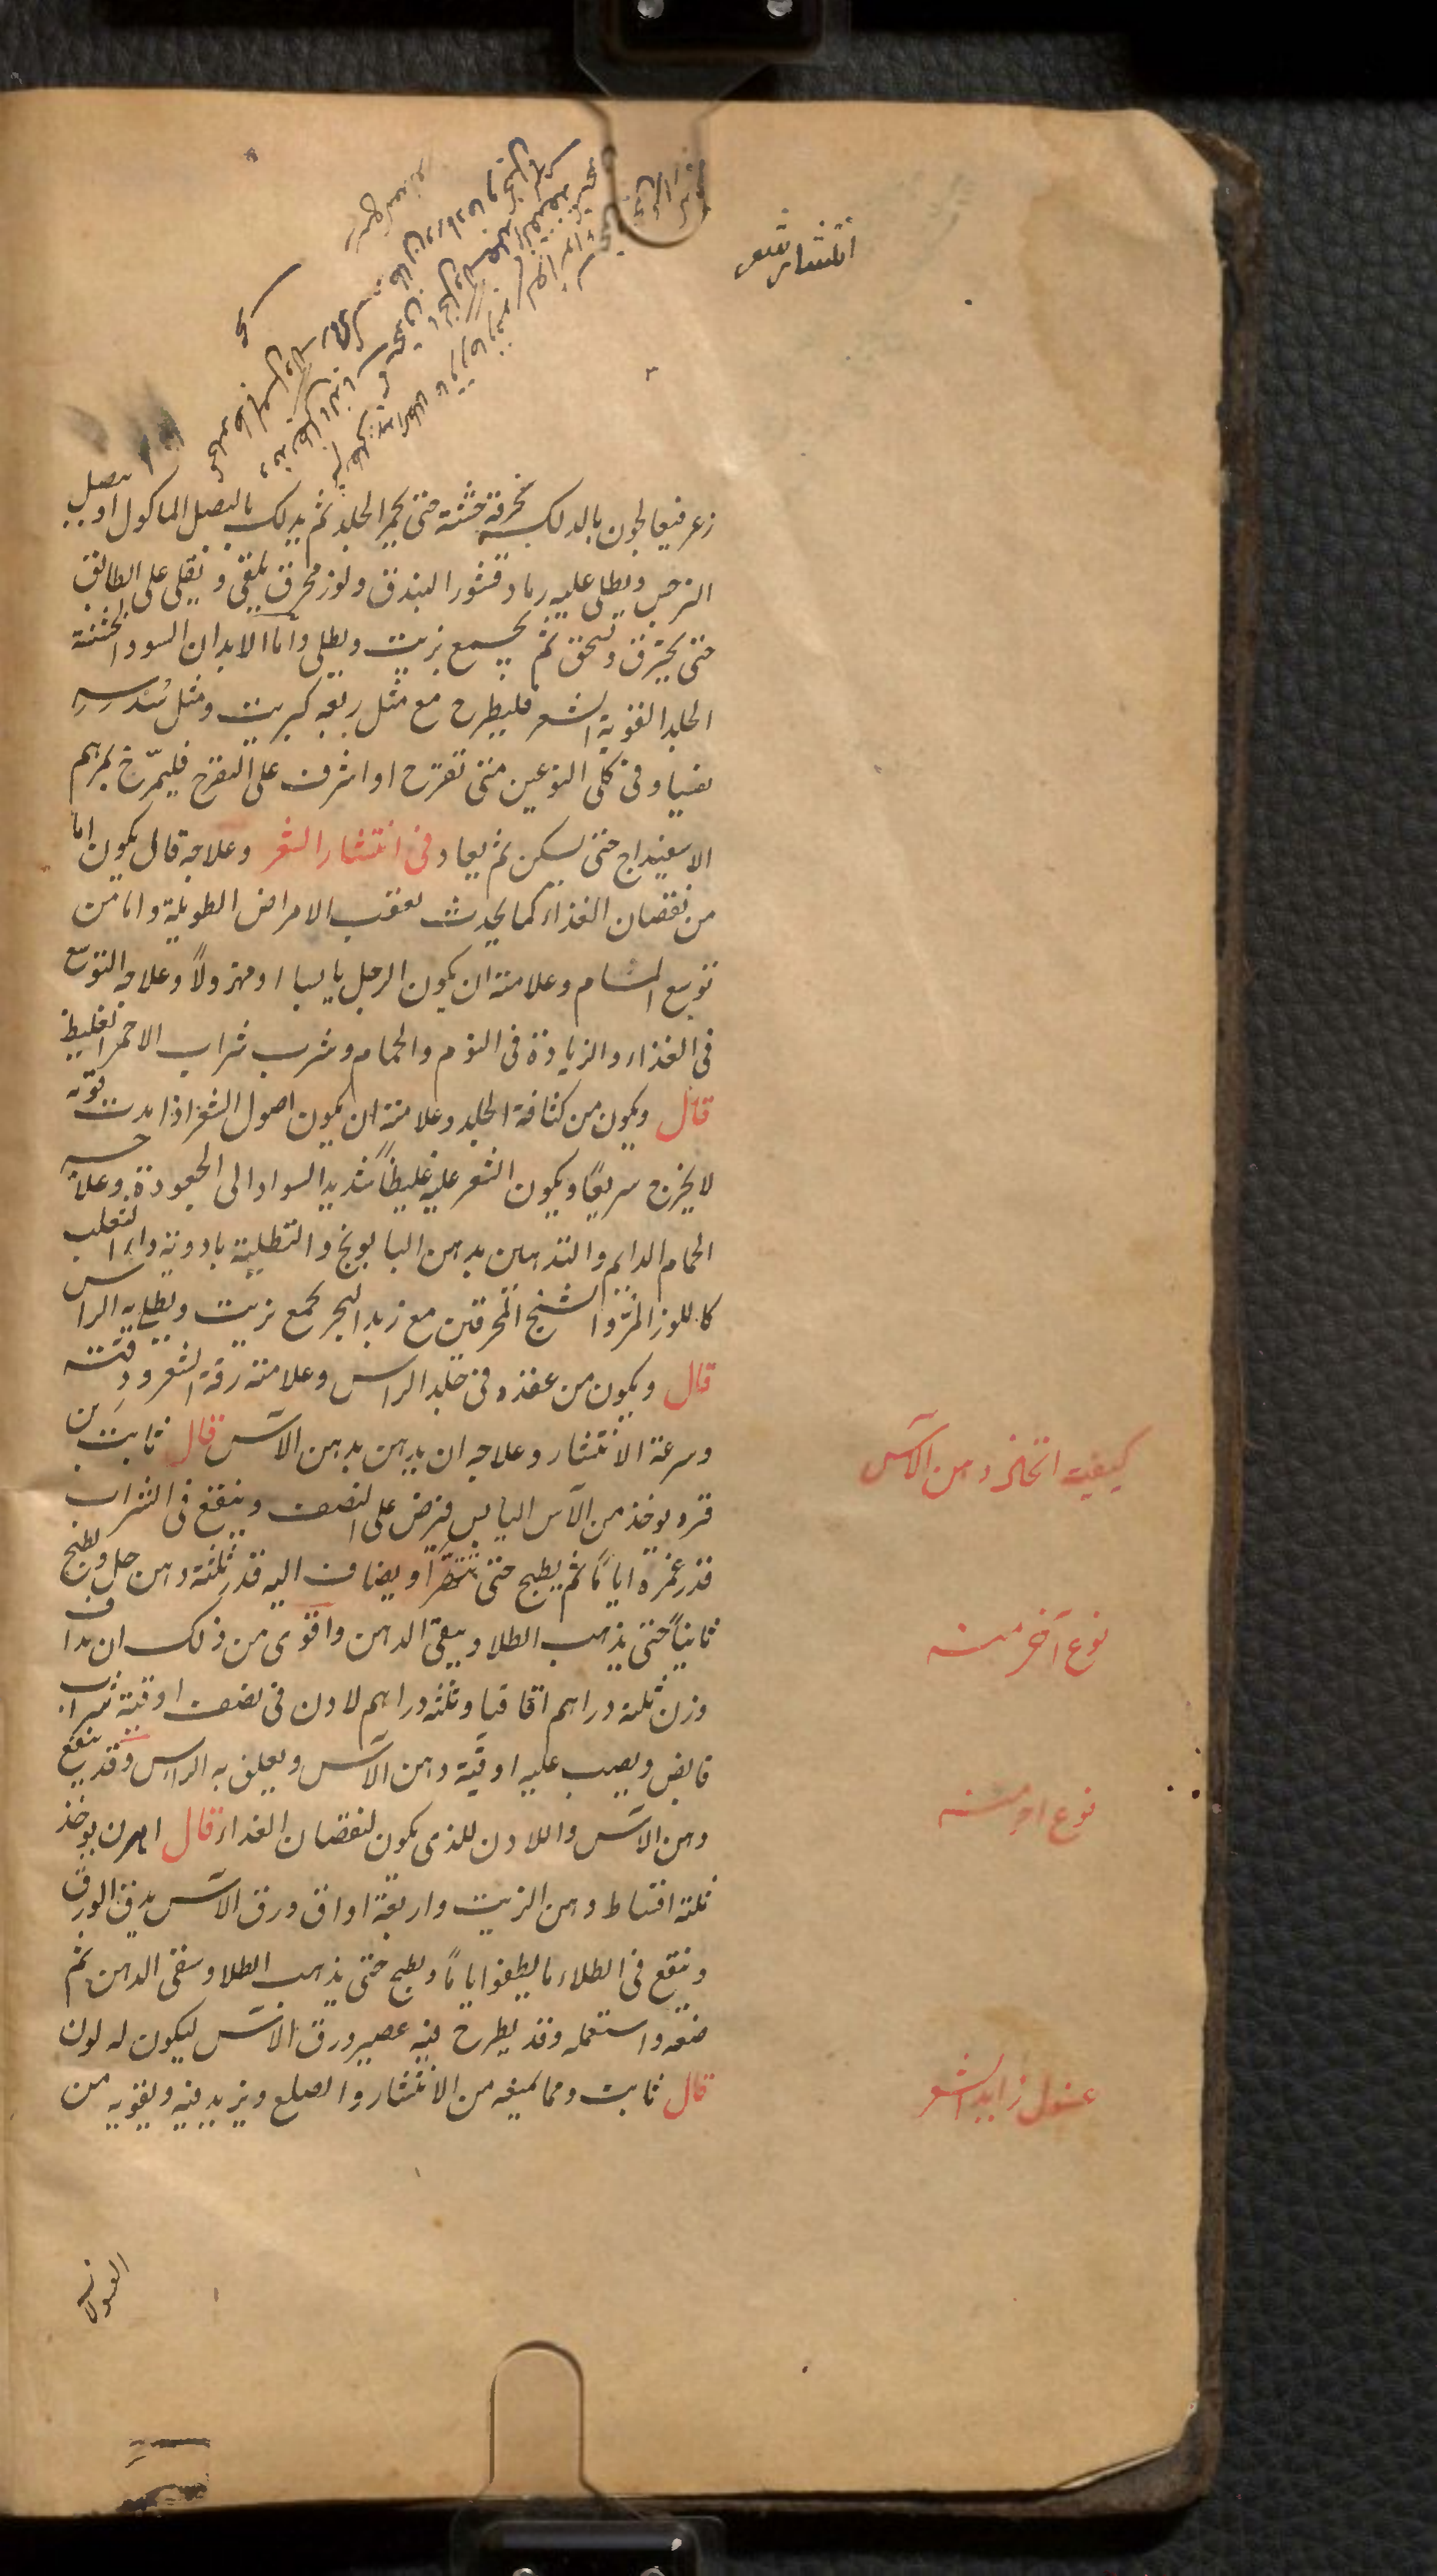 انتشار شعر
زعر فيعالجون بالدلك بخرقة خشنة حتى يحمر الجلد ثم يدلك بالبصل الماكول او بصل
النرجس ويطلى عليه رماد قشور البندق ولوز محرق يلقى ويقلى على الطابق
حتى يحترق ويسحق ثم يجمع بزيت ويطلى واما الابدان السود الخشنة
الجلد القوية الشعر فليطرح مع مثل ربعه كبريت ومثل سدسه
تفسيا وفى كلى النوعين متى تقرح او اشرف على التقرح فليمرّخ بمرهم
الاسفيداج حتى يسكن ثم يعاد فى انتشار الشعر وعلاجه قال يكون اما
من نقصان الغذاء كما يحدث بعقب الامراض الطويلة واما من
توسع المسام وعلامته ان يكون الرجل يابسا او مهزولاً وعلاجه التوسع
فى الغذاء والزيادة فى النوم والحمام وشرب شراب الاحمر الغليظ
قال ويكون من كثافة الجلد وعلامته ان يكون اصول الشعر اذا بدت قوته
لا يخرج سريعًا ويكون الشعر عليه غليظًا شديد السواد الى الجعودة وعلاجه
الحمام الدايم والتدهين بدهن البابونج والتطلية بادوية داء الثعلب
كاللوز المرّ والشيح المحرقين مع زبد البحر يجمع بزيت ويطلى به الراس
قال ويكون من عفن فى جلد الراس وعلامته رقة الشعر ودقته
وسرعة الانتثار وعلاجه ان يدهن بدهن الآس قال ثابت بن
قره يوخذ من الآس اليابس فيرض على النصف وينقع فى الشراب
قدر غمره ايامًا ثم يطبخ حتى يتهرّأ ويضاف اليه قدر ثلثه دهن حل ويطبخ
ثانيًا حتى يذهب الطلا ويبقى الدهن واقوى من ذلك ان يداف
وزن ثلثة دراهم اقاقيا وثلثة دراهم لادن فى نصف اوقية شراب
قابض ويصب عليه اوقية دهن الآس ويعلق به الراس وقد ينفع
دهن الآس واللادن للذى يكون لنقصان الغداء قال اهرن يوخذ
ثلثة اقساط دهن الزيت واربعة اواق ورق الآس يدق الورق
وينقع فى الطلاء ما يطفوا ايامًا ويطبخ حتى يذهب الطلا ويبقى الدهن ثم
صفه واستعمله وقد يطرح فيه عصير ورق الآس ليكون له لون
قال ثابت ومما يمنعه من الانتثار والصلع ويزيد فيه ويقويه من
كيفيت اتخاذ دهن الآس
نوع آخر منه
نوع اخر منه
غسول زايد الشعر